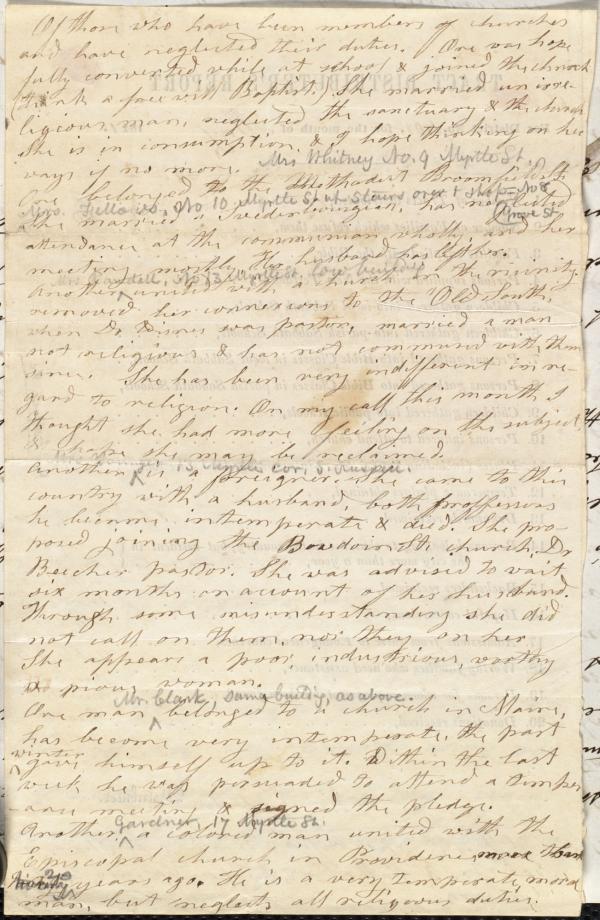 Of those who have been members of churches
and have neglected their duties. One was hope
fully converted while at school & joined the church
(think a free will Baptist.) She married an irre-
ligious man, neglected the sanctuary & the church
She is in consumption, & I hope thinking on her
ways if no more.
Mrs Whitney No. 9 Myrtle St.
One belonged to the Methodist Bromfield St.
Mrs. Fellows, No 10 Myrtle St up Stairs over t shop No 8
Grove St
She married a Swedenborgian, has neglected
attendance at the communion wholly and her
meeting mostly. Her husband has left her.
Mrs No 13 Myrtle St. low building
Another united with a church in the vicinity
removed her connexions to the Old South,
when Dr Wisner was pastor, married a man
not religious & has not communed with them
since. She has been very indifferent in re-
gard to religion. On my call this month I
thought she had more feeling on the subject
& hope she may be reclaimed.
15 Myrtle cor. S. Russell.
Another is a foreigner. She came to this
country with a husband, both proffessors
he become intemperate & died. She pro-
posed joining the Bowdoin St. church, Dr
Beecher pastor. She was advised to wait
six months on account of her husband.
Through some misunderstanding she did
not call on them, nor they on her
She appears a poor industrious, worthy
& pious, woman.
Mr. Clark, same building, as above.
One man belonged to a church in Maine,
has become very intemperate, the past
winter
gave himself up to it. Within the last
week he was persuaded to attend a temper
ance meeting & signed the pledge.
Gardner, 17 Myrtle St.
Another a colored man united with the
Episcopal church in Providence more than
20
years ago. He is a very temperate, moral
man, but neglects all religious duties.